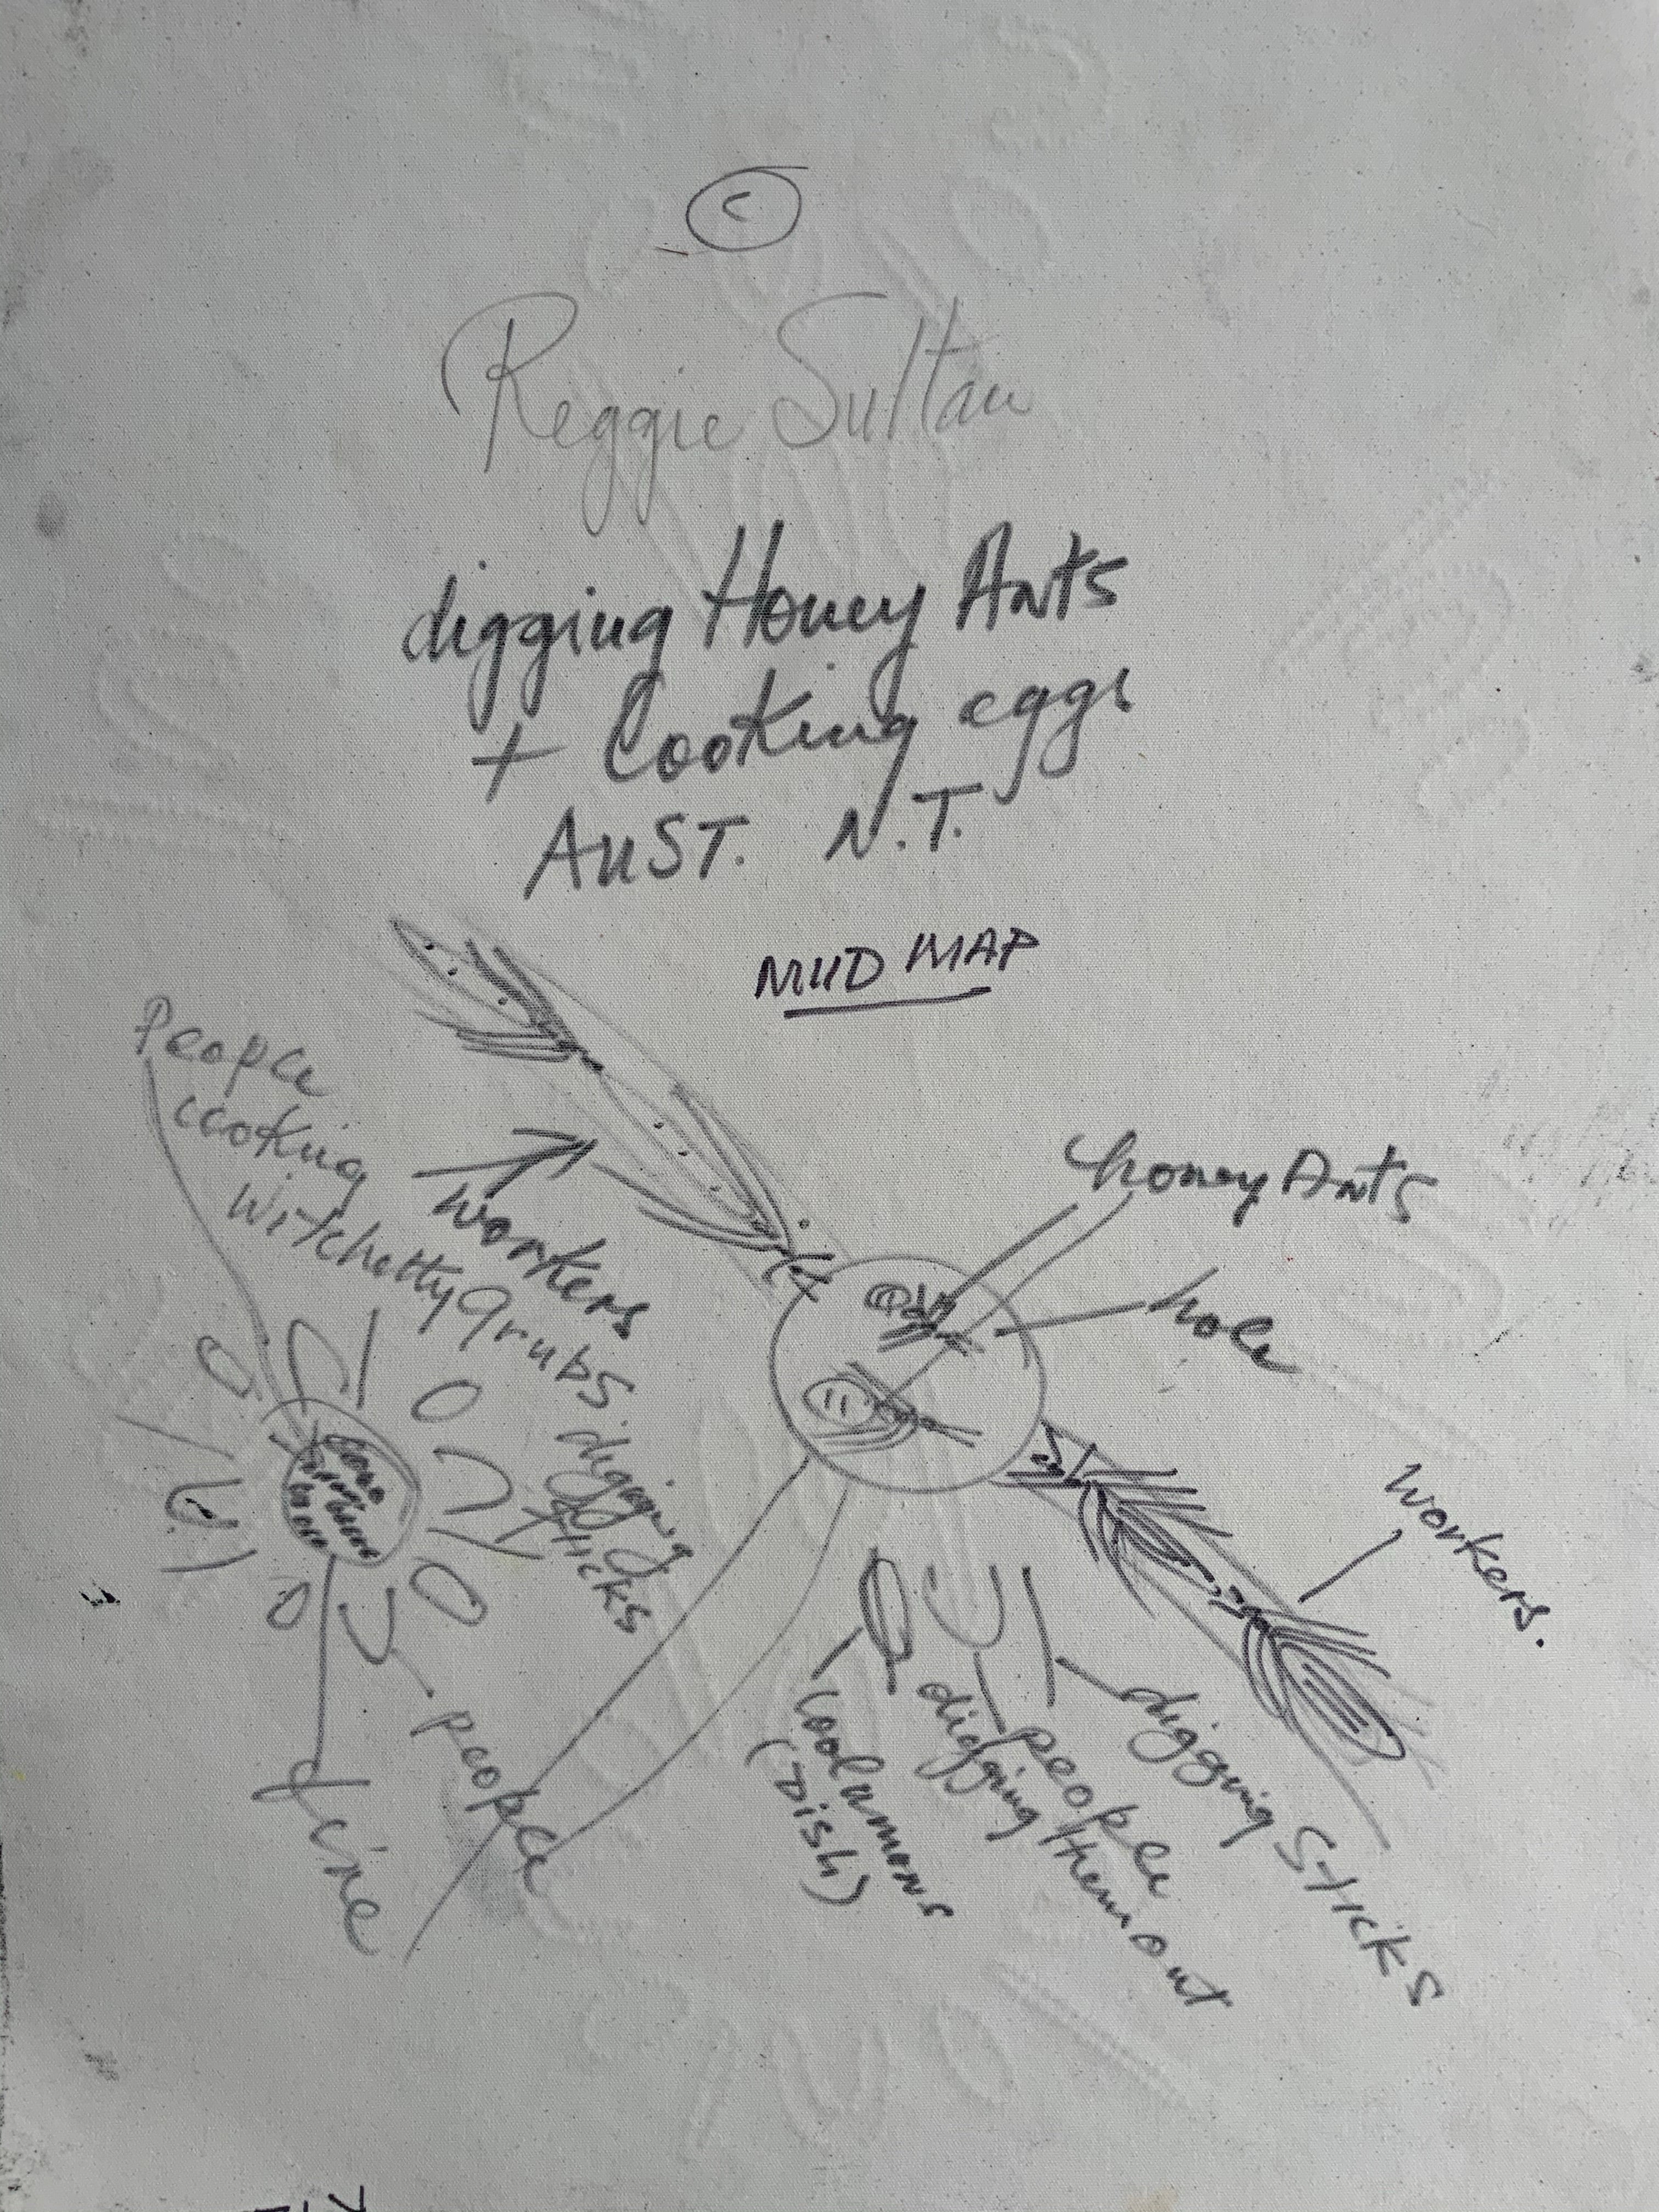 ©
Reggie Sultan
digging Honey Ants
+ Cooking eggs
AUST. N.T.
MUD MAP
People
cooking
witchetty grubs.
workers
honey Ants
hole
digging
sticks
workers.
people
fire
Coolamons
(Dish)
people
digging them out
digging Sticks